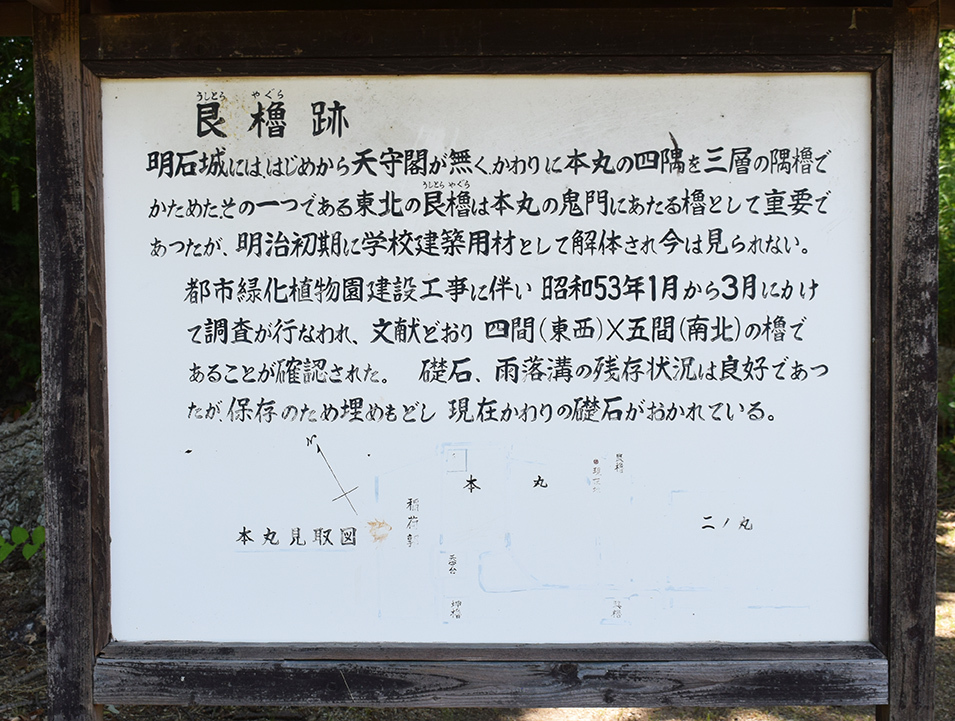 うしとら やぐら
艮櫓跡
明石城には、はじめから天守閣が無く、かわりに本丸の四隅を三層の隅櫓で
うしとら やぐら
かためた。その一つである東北の艮櫓は本丸の鬼門にあたる櫓として重要で
あつたが、明治初期に学校建築用材として解体され今は見られない。
都市緑化植物園建設工事に伴い 昭和53年1月から3月にかけ
て調査が行なわれ、文献どおり 四間(東西)×五間(南北)の櫓で
あることが確認された。 礎石、雨落溝の残存状況は良好であつ
たが、保存のため埋めもどし 現在かわりの礎石がおかれている。
N
本丸
艮櫓
現在地
稲荷郭
二ノ丸
本丸見取図
天守台
坤櫓
巽櫓